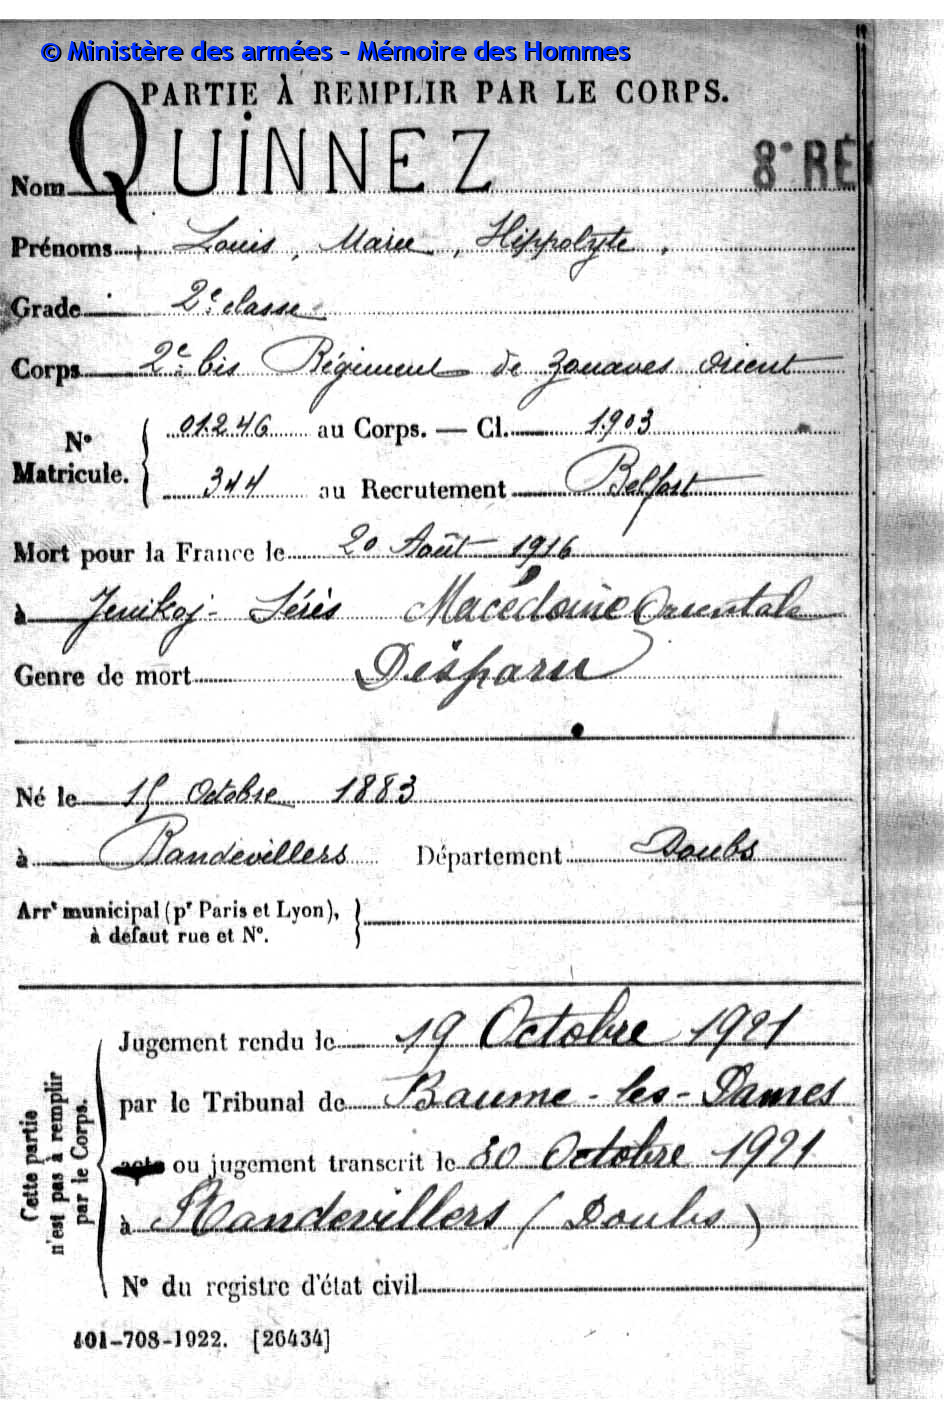 © Ministère des armées - Mémoire des Hommes
PARTIE À REMPLIR PAR LE CORPS.
Nom QUINNEZ
8e RÉ
Prénoms Louis, Marie, Hippolyte,
Grade 2e classe
Corps 2e bis Régiment de Zouaves Orient
No Matricule. { 01246 au Corps. — Cl. 1903
344 au Recrutement Belfort
Mort pour la France le 20 Août 1916
à Jenikoj - Sérès Macédoine Orientale
Genre de mort Disparu
Né le 15 Octobre 1883
à Randevillers Département Doubs
Arrt municipal (pr Paris et Lyon), }
à défaut rue et No.
Cette partie
n'est pas à remplir
par le Corps.
Jugement rendu le 19 Octobre 1921
par le Tribunal de Baume-les-Dames
acte ou jugement transcrit le 30 Octobre 1921
à Randevillers (Doubs)
No du registre d'état civil
101-708-1922. [26434]